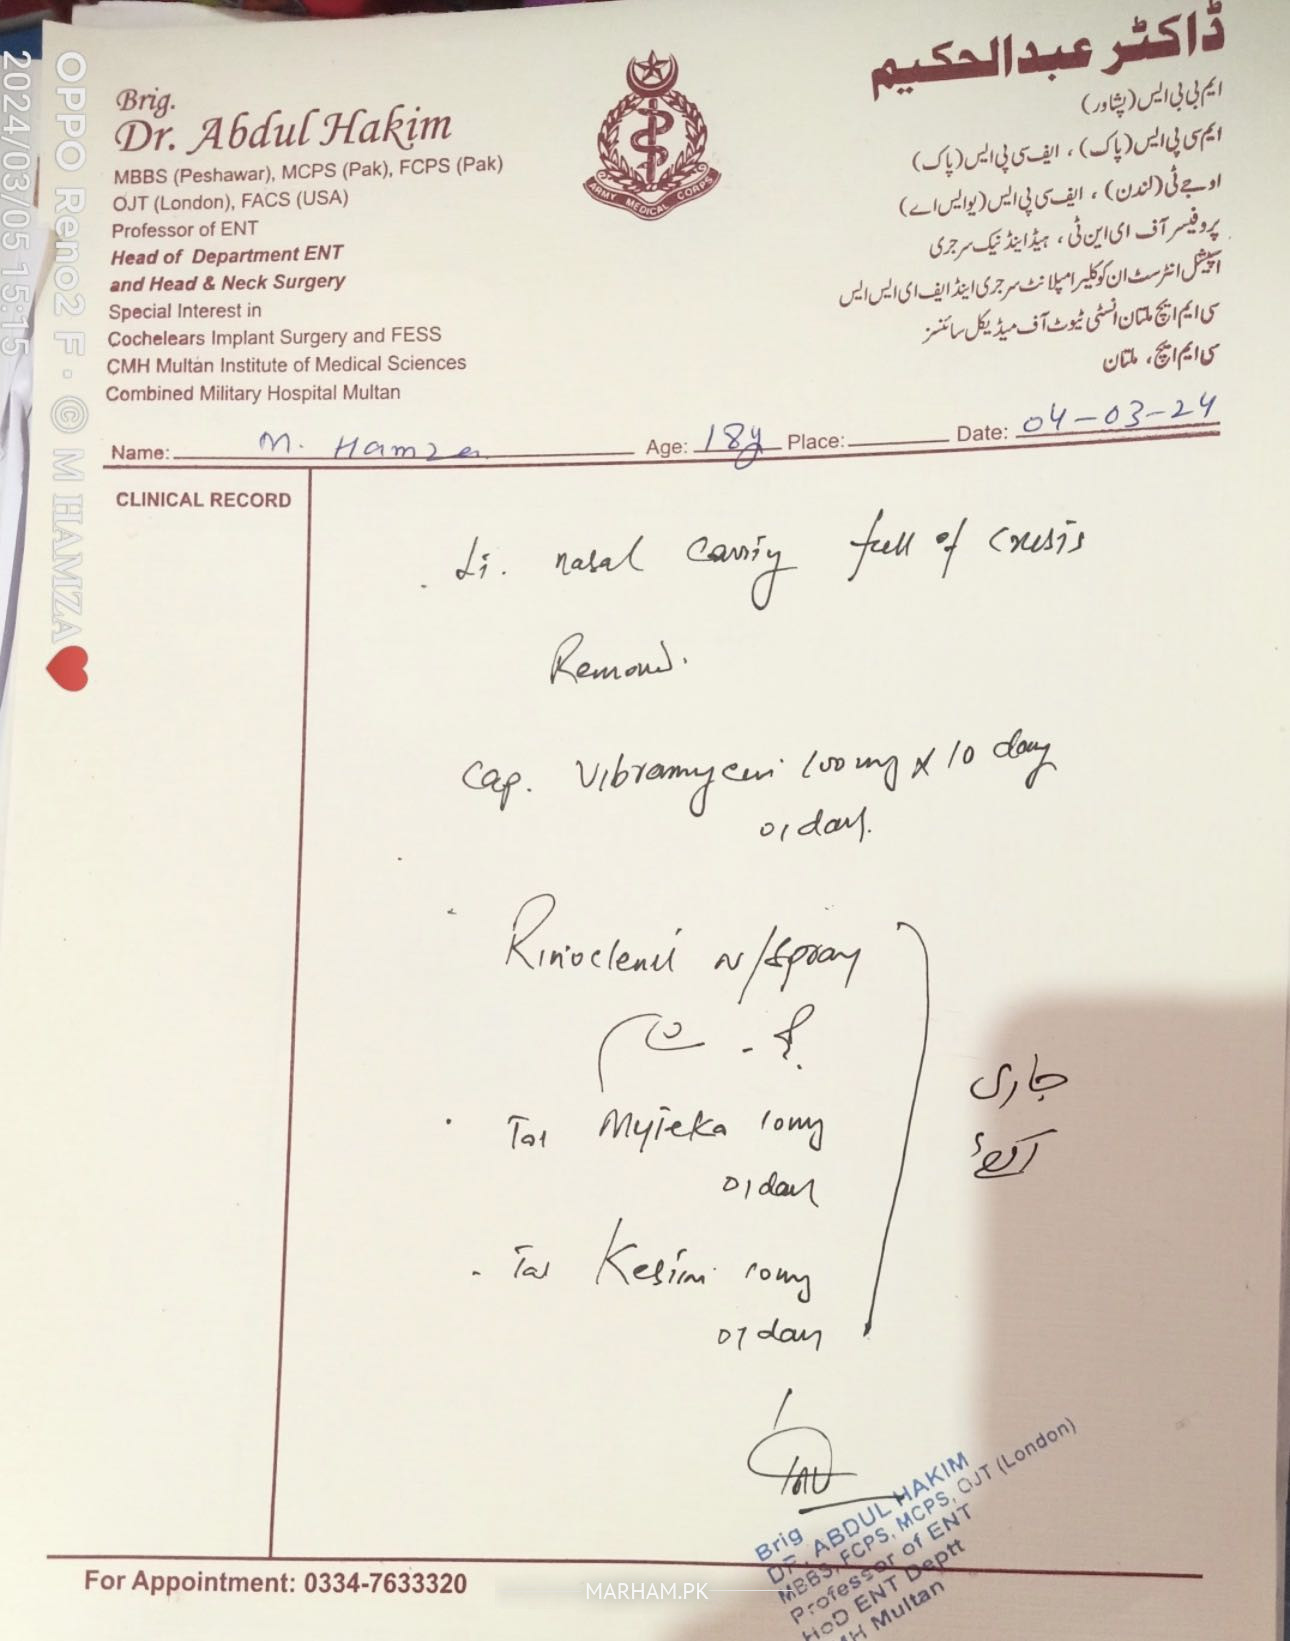 OPPO Reno2 F · © M HAMZA
2024/03/05 15:15
Brig.
Dr. Abdul Hakim
MBBS (Peshawar), MCPS (Pak), FCPS (Pak)
OJT (London), FACS (USA)
Professor of ENT
Head of Department ENT
and Head & Neck Surgery
Special Interest in
Cochelears Implant Surgery and FESS
CMH Multan Institute of Medical Sciences
Combined Military Hospital Multan
ARMY MEDICAL CORPS
ڈاکٹر عبدالحکیم
ایم بی بی ایس (پشاور)
ایم سی پی ایس (پاک) ، ایف سی پی ایس (پاک)
او جے ٹی (لندن) ، ایف سی پی ایس (یو ایس اے)
پروفیسر آف ای این ٹی ، ہیڈ اینڈ نیک سرجری
اسپیشل انٹرسٹ ان کوکلیر امپلانٹ سرجری اینڈ ایف ای ایس ایس
سی ایم ایچ ملتان انسٹی ٹیوٹ آف میڈیکل سائنسز
سی ایم ایچ، ملتان
Name: M. Hamza Age: 18y Place: Date: 04-03-24
CLINICAL RECORD
nasal cavity full of crusts
Removed.
Cap. Vibramycin 100mg x 10 day
01 day.
Rinoclenil n/spray
صبح
Tab Myteka 10mg
01 day
Tab Kestin 10mg
01 day
جاری
Brig
DR. ABDUL HAKIM
MBBS, FCPS, MCPS, OJT (London)
Professor of ENT
HoD ENT Deptt
Multan
For Appointment: 0334-7633320
MARHAM.PK